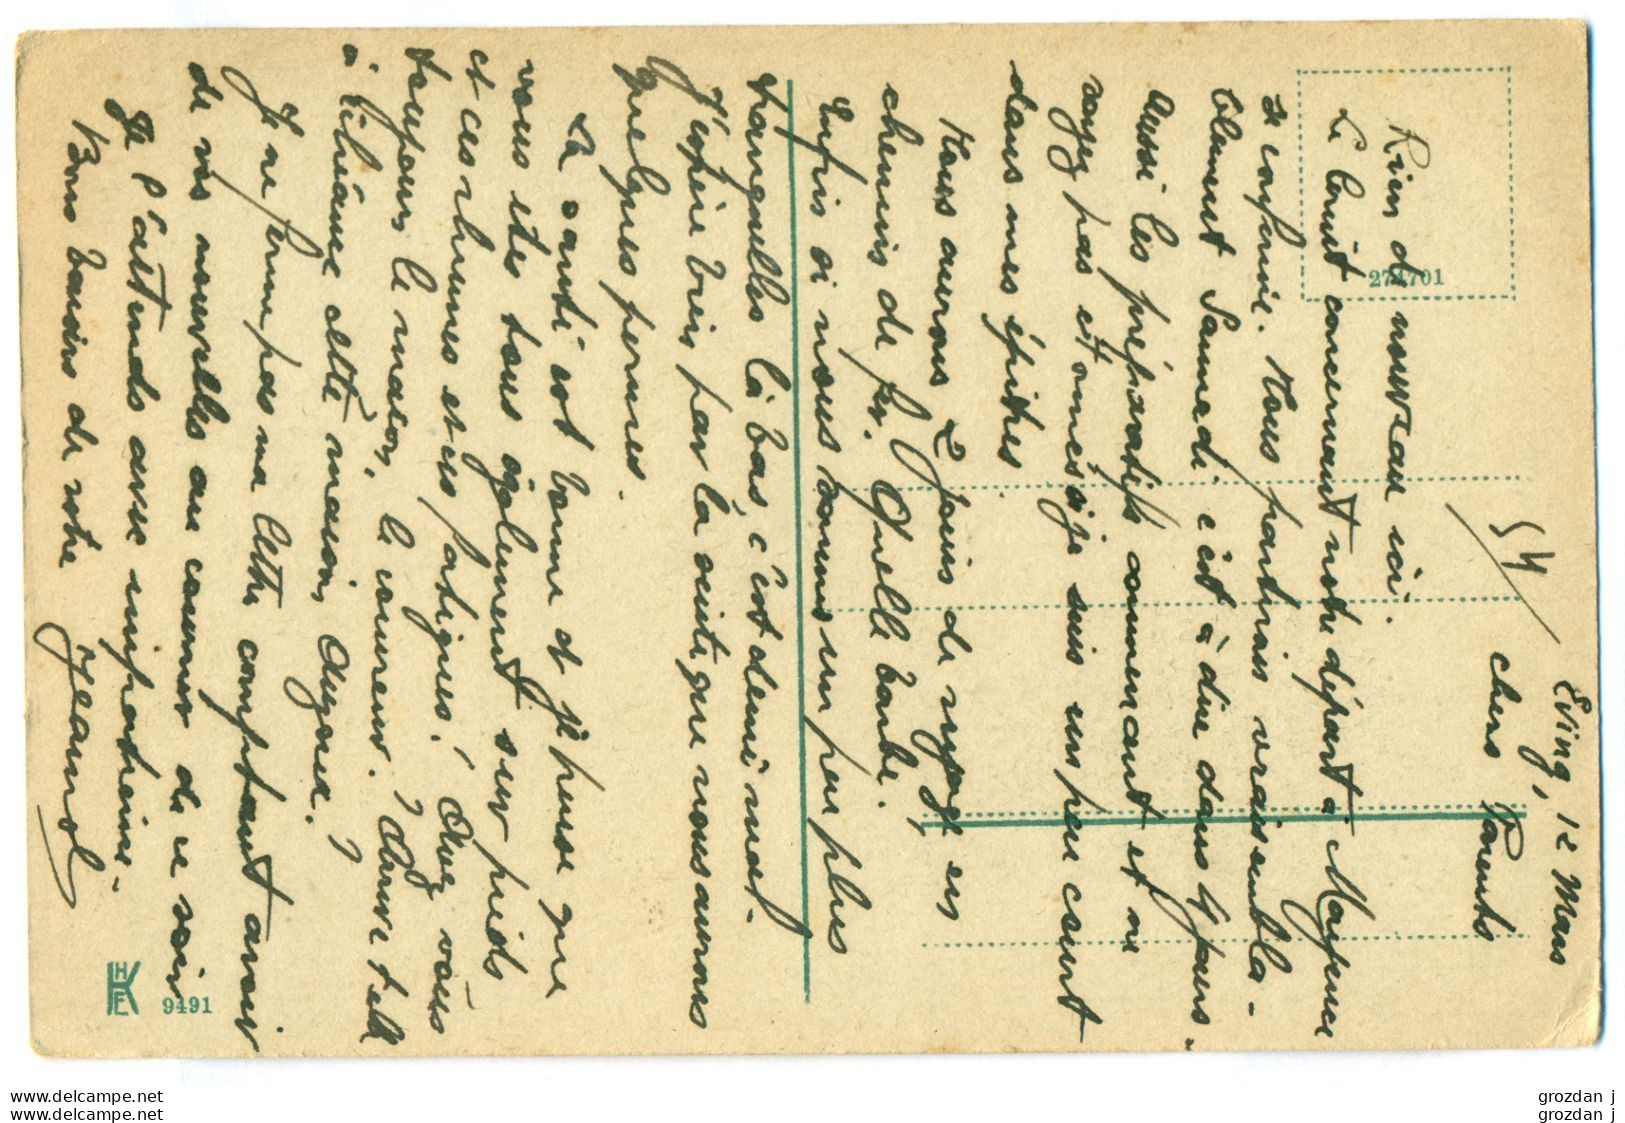 54
Eving, 12 Mars
chers Parents
Rien de nouveau ici.
Le bruit concernant notre départ à Mayence
se confirme. Nous partirons vraisembla-
blement Samedi c'est à dire dans 4 jours.
Aussi les préparatifs commencent et ne
soyez pas étonnés si je suis un peu court
dans mes épîtres
Nous aurons 2 jours de voyage en
chemin de fer. Quelle barbe.
Enfin si nous sommes un peu plus
tranquilles là bas, c'est demi mal.
J'espère bien par la suite que nous aurons
quelques permes.
La santé est bonne et je pense que
vous êtes tous également sur pieds
et ces rhumes et ces fatigues? Avez vous
toujours le maçon, le couvreur? Arrive t elle
à cette maison,
Je ne ferme pas ma lettre comptant avoir
de vos nouvelles au courrier de ce soir
Je l'attends avec impatience.
Bons baisers de votre
Jeannot
274701
HKE
9491
www.delcampe.net
www.delcampe.net
grozdan j
grozdan j